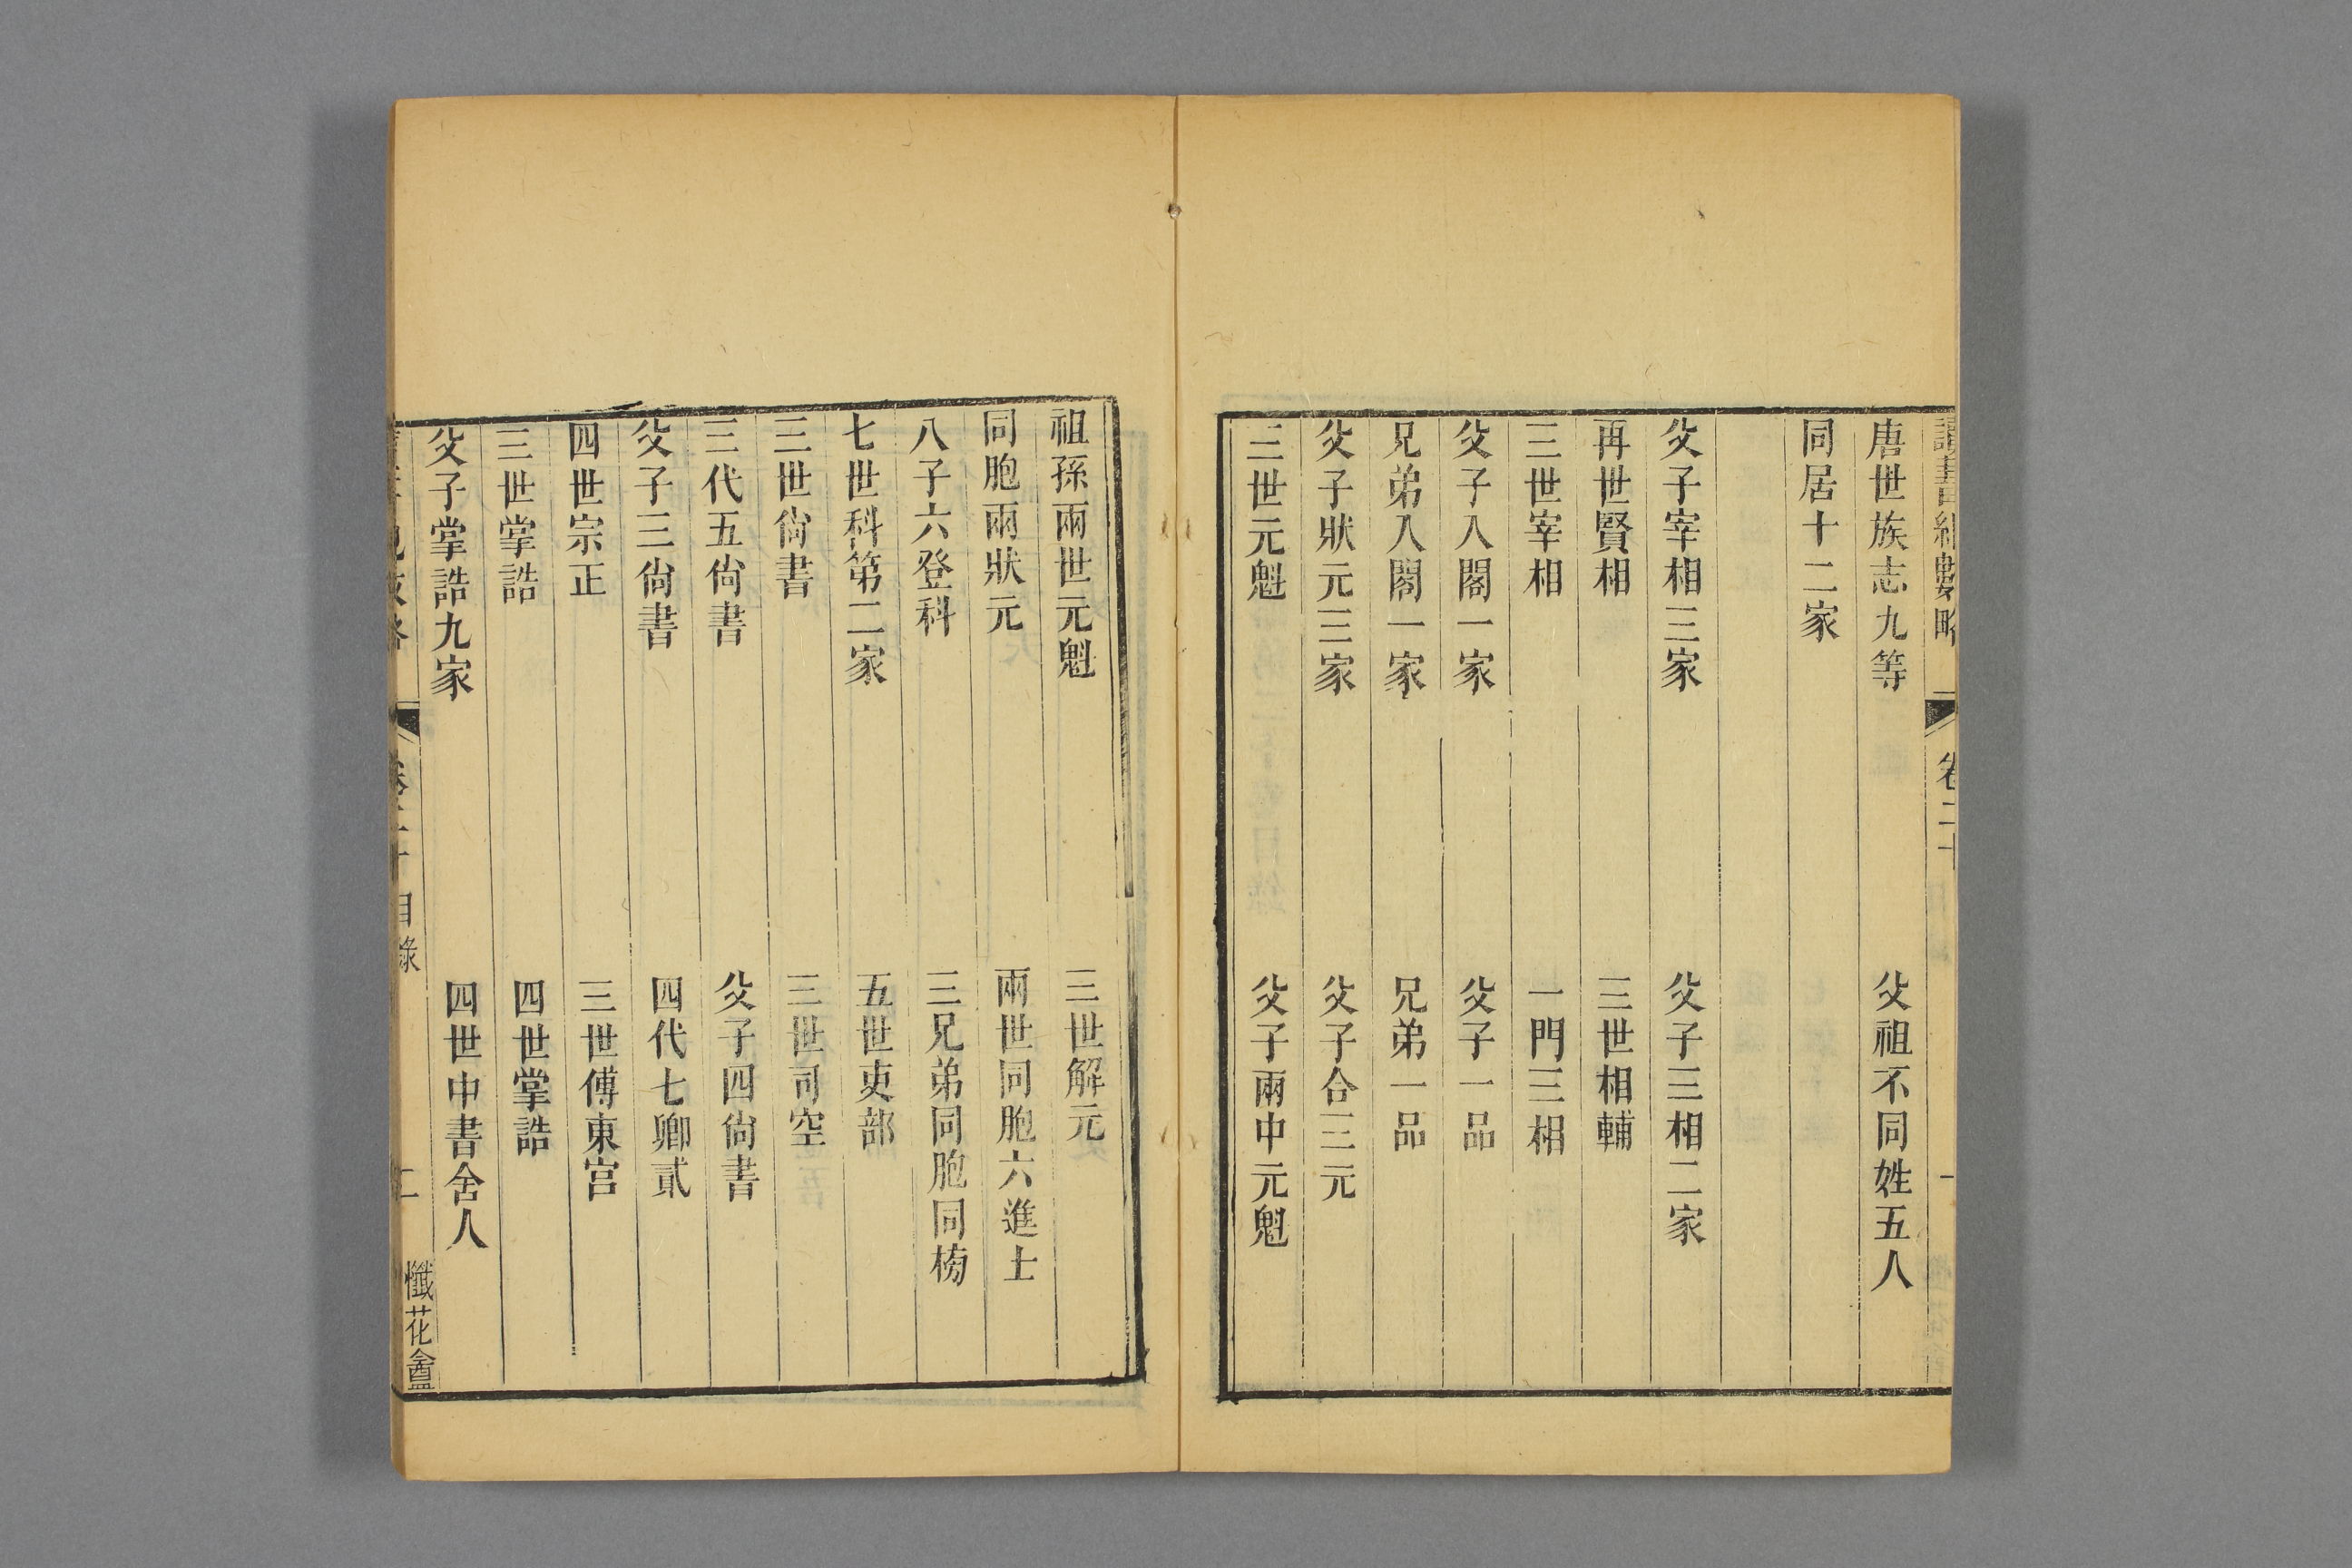 讀書紀數略 卷二十 一
唐世族志九等 父祖不同姓五人
同居十二家
父子宰相三家 父子三相二家
再世賢相 三世相輔
三世宰相 一門三相
父子入閣一家 父子一品
兄弟入閣一家 兄弟一品
父子狀元三家 父子合三元
三世元魁 父子兩中元魁
祖孫兩世元魁 三世解元
同胞兩狀元 兩世同胞六進士
八子六登科 三兄弟同胞同榜
七世科第二家 五世吏部
三世尙書 三世司空
三代五尙書 父子四尙書
父子三尙書 四代七卿貳
四世宗正 三世傅東宮
三世掌誥 四世掌誥
父子掌誥九家 四世中書舍人
卷二十 目錄 二 懺花盦